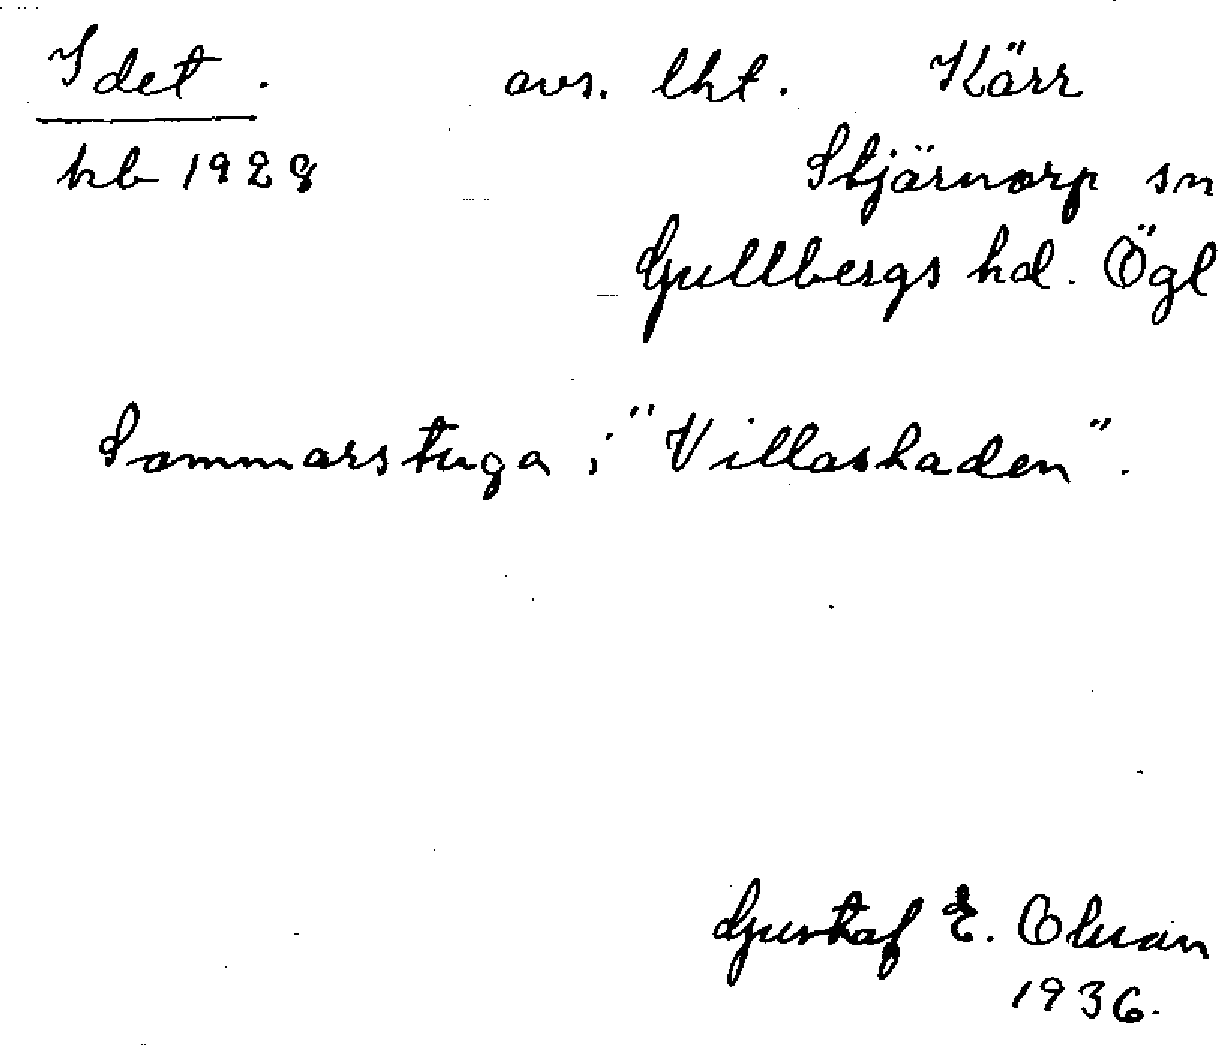 Idet. avs. lht. Kärr
hb 1928 Stjärnorp sn
Gullbergs hd. Ögl
Sommarstuga i "Villastaden".
Gustaf E. Olsson
1936.